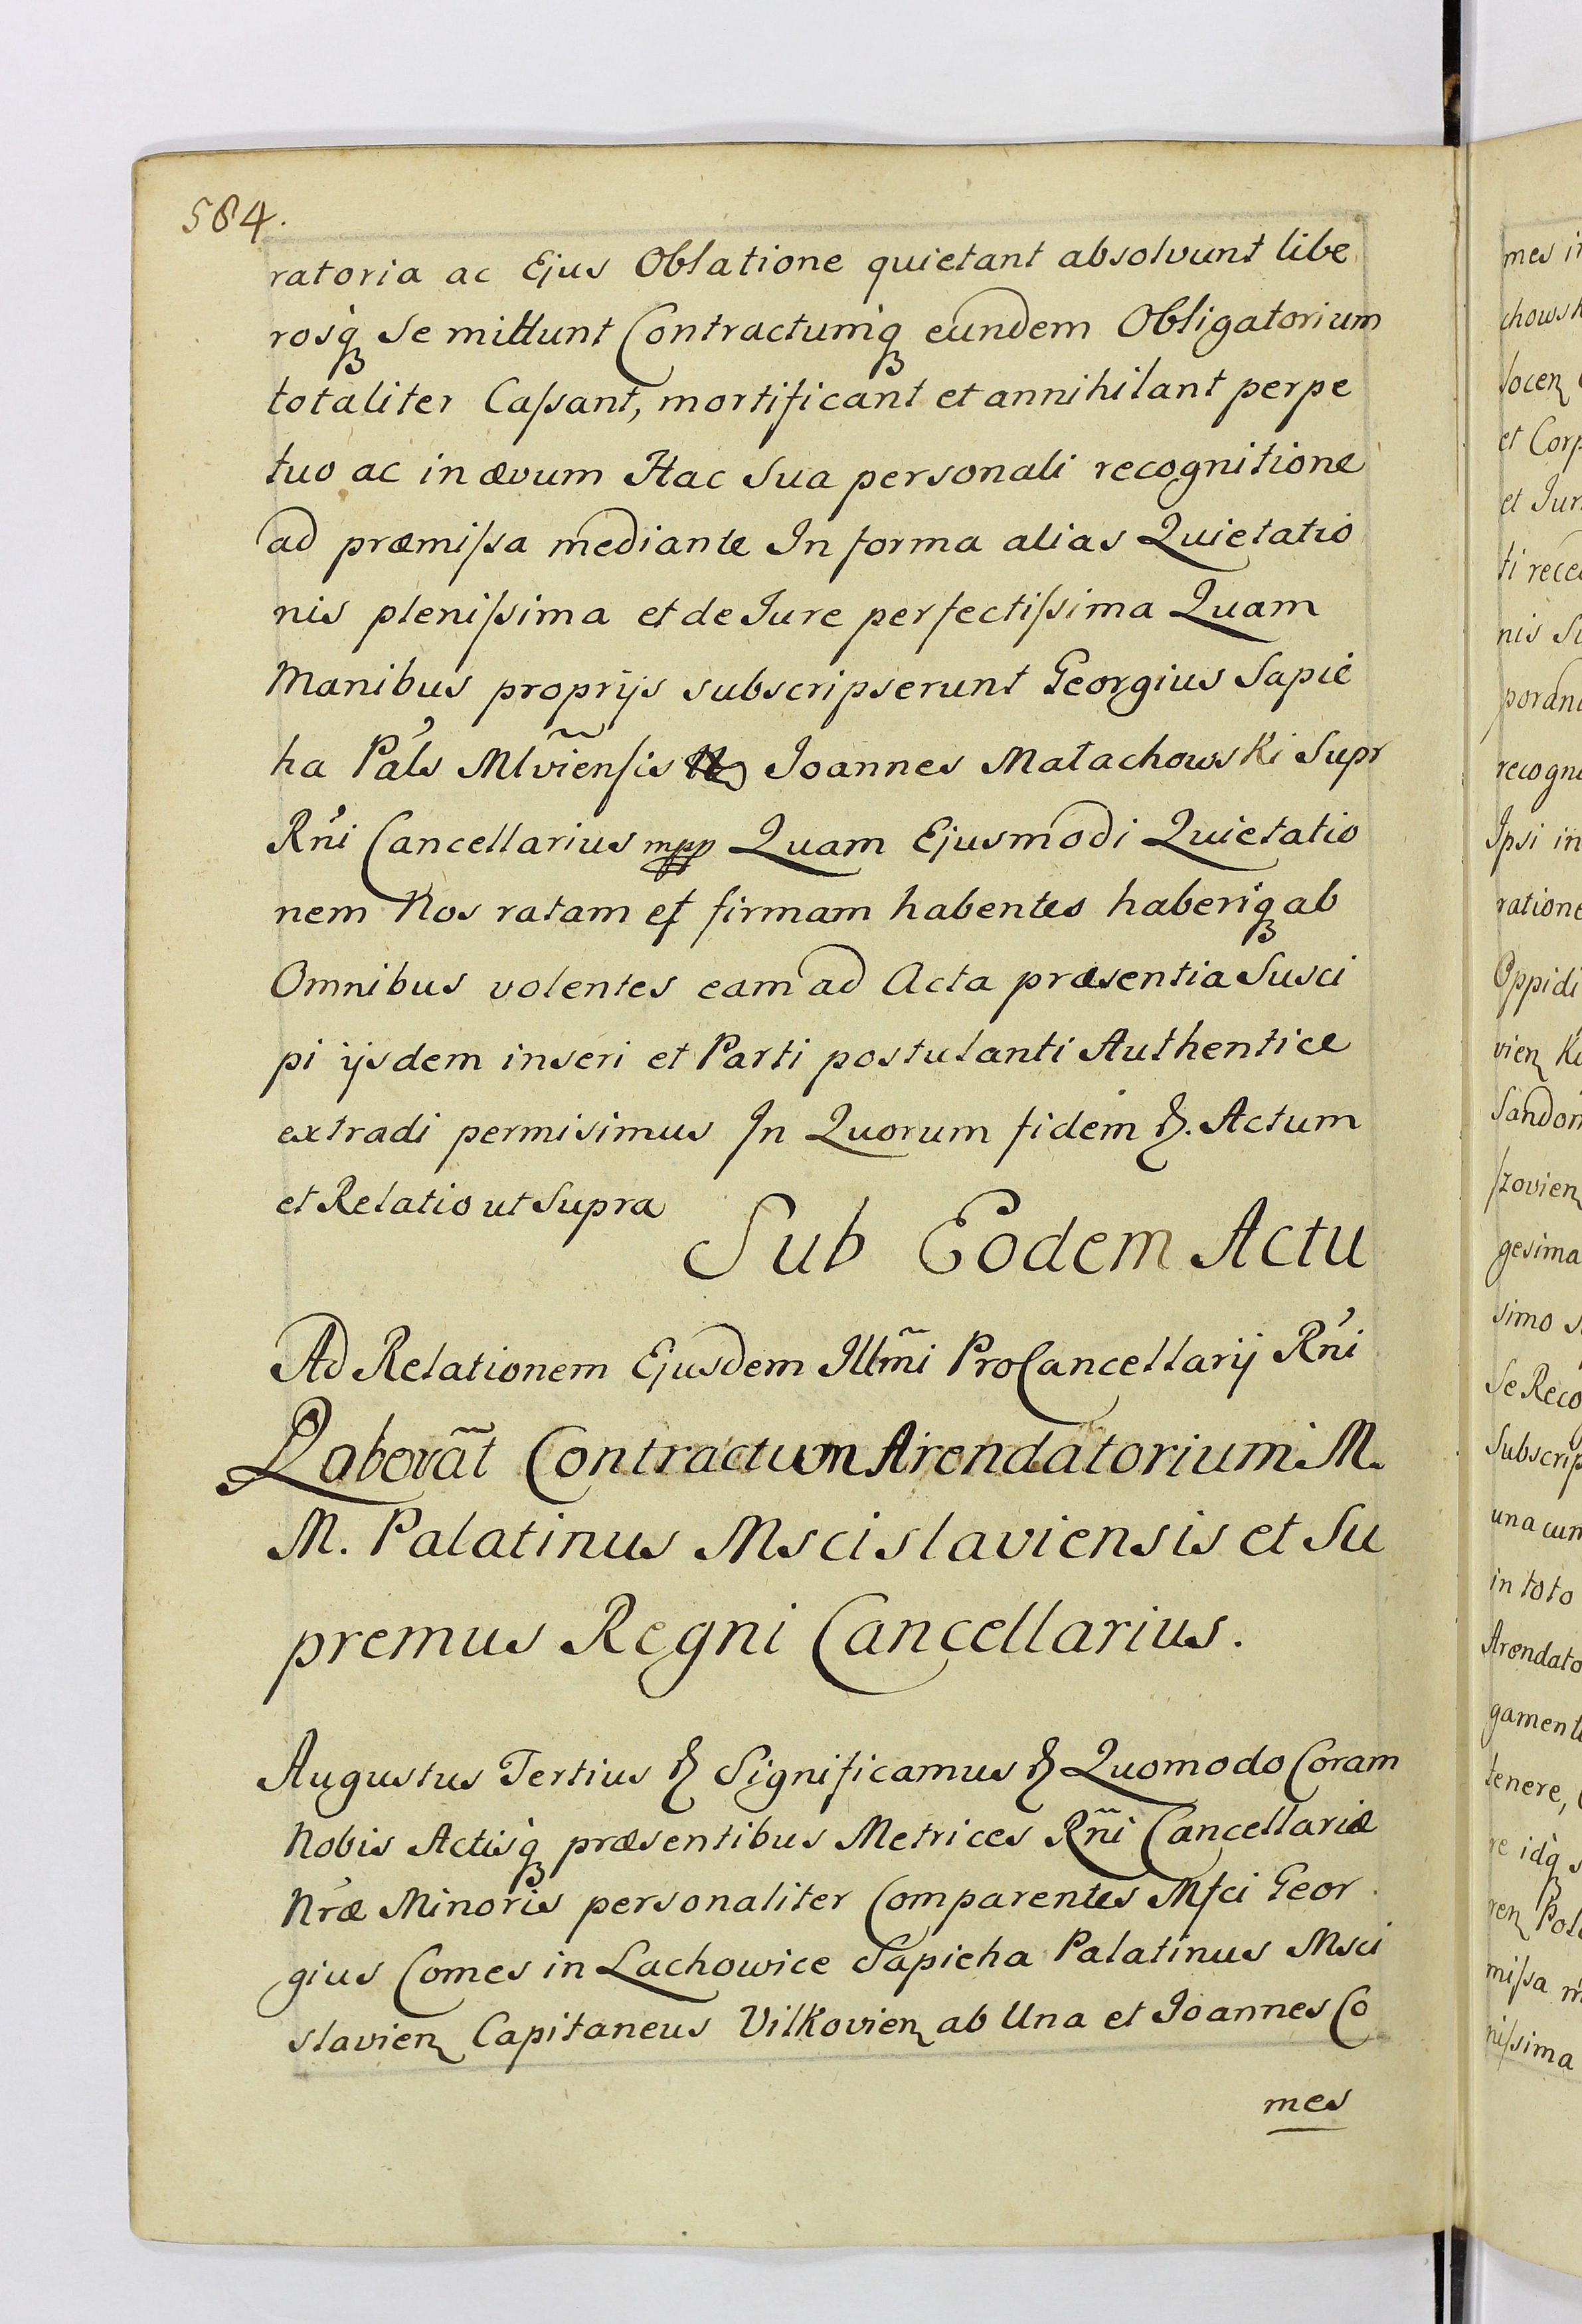 584.
ratoria ac Ejus Oblatione quietant absolvunt libe
rosq́ꝫ Se mittunt Contractumq́ꝫ eundem Obligatorium
totaliter Caſsant, mortificant et annihilant perpe
tuo ac in ævum Hac Sua personali recognitione
ad præmiſsa mediante In forma alias Quietatio
nis pleniſsima et de Jure perfectiſsima Quam
Manibus proprijs subscripserunt Georgius Sapie
ha Pals Mlviẽnſis Joannes Małachowski Supr
Rni Cancellarius mpp Quam Ejusmodi Quietatio
nem Nos ratam et firmam habentes haberiq́ꝫ ab
Omnibus volentes eam ad Acta præsentia Susci
pi ijsdem inseri et Parti postulanti Authentice
extradi permisimus In Quorum fidem &. Actum
et Relatio ut Supra
Sub Eodem Actu
Ad Relationem Ejusdem Illm̃i ProCancellarij Rni
Roborãt Contractum Arendatorium M.
M. Palatinus Mscislaviensis et Su
premus Regni Cancellarius.
Augustus Tertius & Significamus & Quomodo Coram
Nobis Actisq́ꝫ præsentibus Metrices Rñi Cancellariæ
Nræ Minoris personaliter Comparentes Mſci Geor
gius Comes in Lachowice Sapieha Palatinus Msci
slavien Capitaneus Vilkovien ab Una et Joannes Co
mes
mes
chows
et Corp
nis
recogn
Ipsi in
ratione
Oppidi
vien
Sandom
gesima
simo
Se Reco
Subscrip
una cum
in toto
Arendato
gament
tenere,
miſsa
niſsima